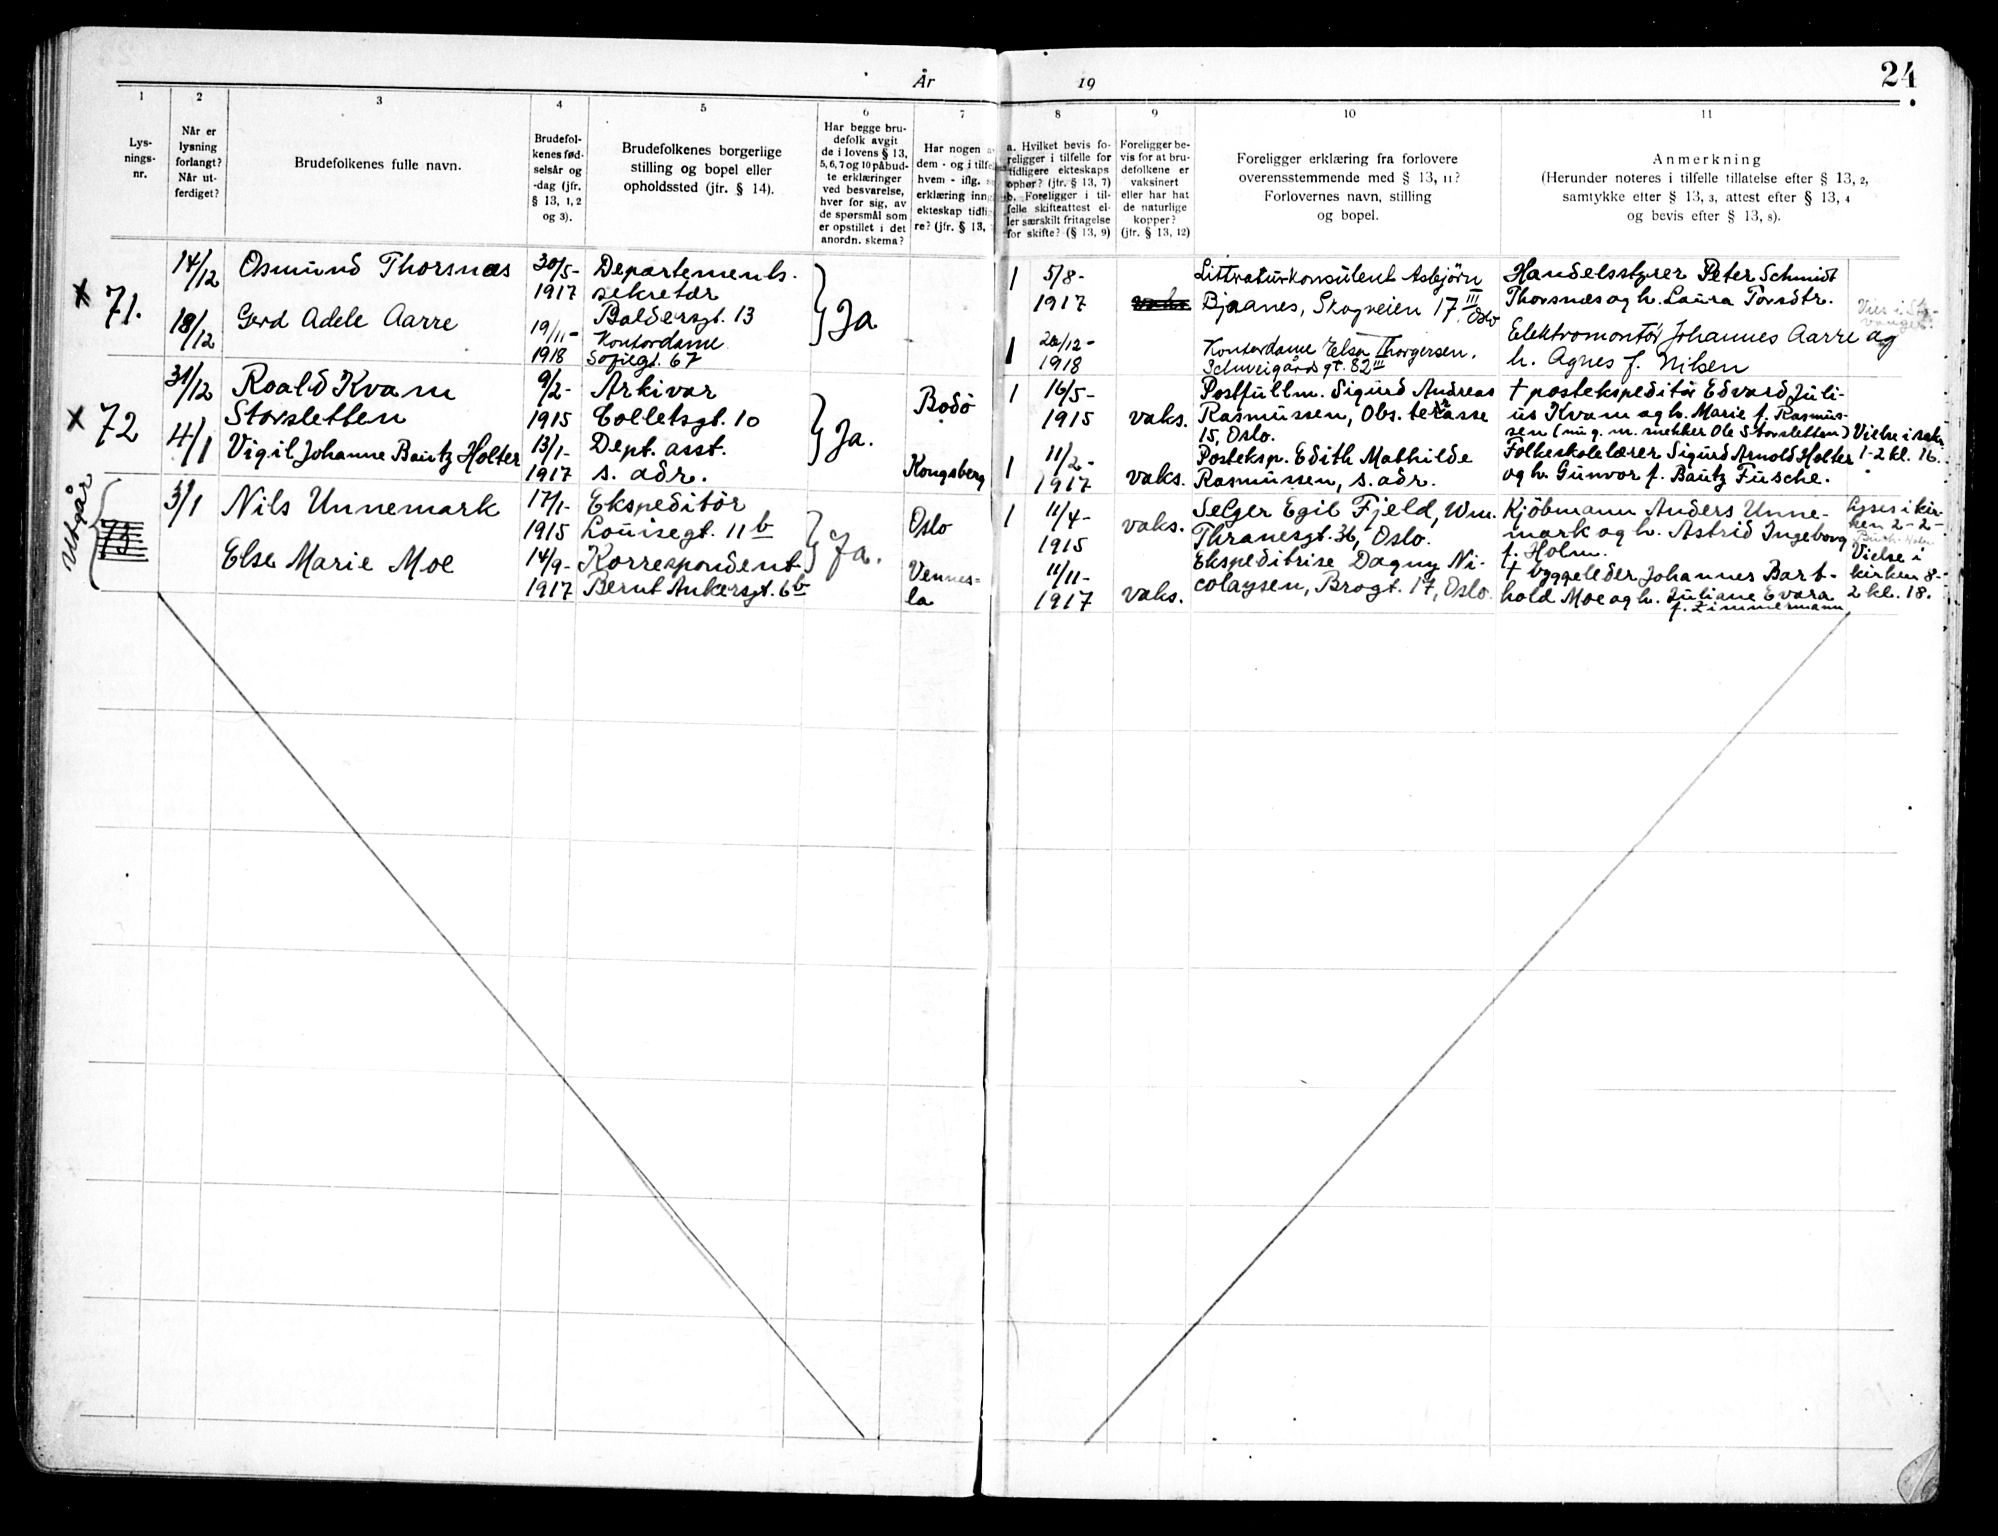 År 19
24
1 2 3 4 5 6 7 8 9 10 11
Lys-
nings-
nr.
Når er
lysning
forlangt?
Når ut-
ferdiget?
Brudefolkenes fulle navn.
Brudefol-
kenes fød-
selsår og
-dag (jfr.
§ 13, 1, 2
og 3).
Brudefolkenes borgerlige
stilling og bopel eller
opholdssted (jfr. § 14).
Har begge bru-
defolk avgit
de i lovens § 13,
5, 6, 7 og 10 påbud-
te erklæringer
ved besvarelse,
hver for sig, av
de spørsmål som
er opstillet i det
anordn. skema?
Har nogen a
dem - og i tilfel
hvem - iflg. s
erklæring inng
ekteskap tidlig
re? (jfr. § 13,
a. Hvilket bevis fo-
religger i tilfelle for
tidligere ekteskaps
ophør? (jfr. § 13, 7)
b. Foreligger i til-
felle skifteattest el-
ler særskilt fritagelse
for skifte? (§ 13, 9)
Foreligger be-
vis for at bru-
defolkene er
vaksinert
eller har hat
de naturlige
kopper?
(jfr. § 13, 12)
Foreligger erklæring fra forlovere
overensstemmende med § 13, 11?
Forlovernes navn, stilling
og bopel.
Anmerkning
(Herunder noteres i tilfelle tillatelse efter § 13, 2,
samtykke efter § 13, 3, attest efter § 13, 4
og bevis efter § 13, 8).
× 71.
14/12
18/12
Osmund Thorsnæs
Gerd Adele Aarre
30/5-
1917
19/11-
1918
Departements-
sekretær
Baldersgt. 13
Kontordame
Sofiegt. 67
Ja
1 5/8-
1917
1 /12-
1918
Litteraturkonsulent Asbjørn
Bjaanes, Skogveien 17 III Oslo
Kontordame Elsa Thorgersen,
Schweigårds gt. 82 III
Handelsstyrer Peter Schmidt
Thorsnæs og h. Laura Torsdtr.
Elektromontør Johannes Aarre og
h. Agnes f. Nilsen
× 72
31/12
4/1
Roald Kvam
Storsletten
Vigil Johanne Bautz Holter
9/2-
1915
13/1-
1917
Arkivar
Colletsgt. 10
Dept. asst.
s. adr.
Ja.
Bodø
Kongsberg
1 16/5-
1915
1 11/2-
1917
vaks.
vaks.
Postfullm. Sigurd Andreas
Rasmussen, Obs. terrasse
15, Oslo.
Posteksp. Edith Mathilde
Rasmussen, s. adr.
† postekspeditør Edvard Juli-
us Kvam og h. Marie f. Rasmus-
sen (nu g. m. snekker Ole Storsletten)
Folkeskolelærer Sigurd Arnold Holter
og h. Gunvor f. Bautz Fusche.
Vielse i sakr.
1-2 kl. 16.
Utgår
73
3/1
Nils Unnemark
Else Marie Moe
17/1-
1915
14/9-
1917
Ekspeditør
Louisegt. 11 b
Korrespondent
Bernt Ankersgt. 6 b
Ja.
Oslo
Vennes-
la
1 11/4-
1915
11/11-
1917
vaks.
vaks.
Selger Egil Fjeld, Wm.
Thranesgt. 36, Oslo.
Ekspeditrise Dagny Ni-
colaysen, Brogt. 17, Oslo.
Kjøbmann Anders Unne-
mark og h. Astrid Ingeborg
f. Holm.
† byggeleder Johannes Bart-
hold Moe og h. Juliane Evara
f. Zimmermann
Lyses i kir-
ken 2-2-
Vielse i
kirken 8-
2 kl. 18.